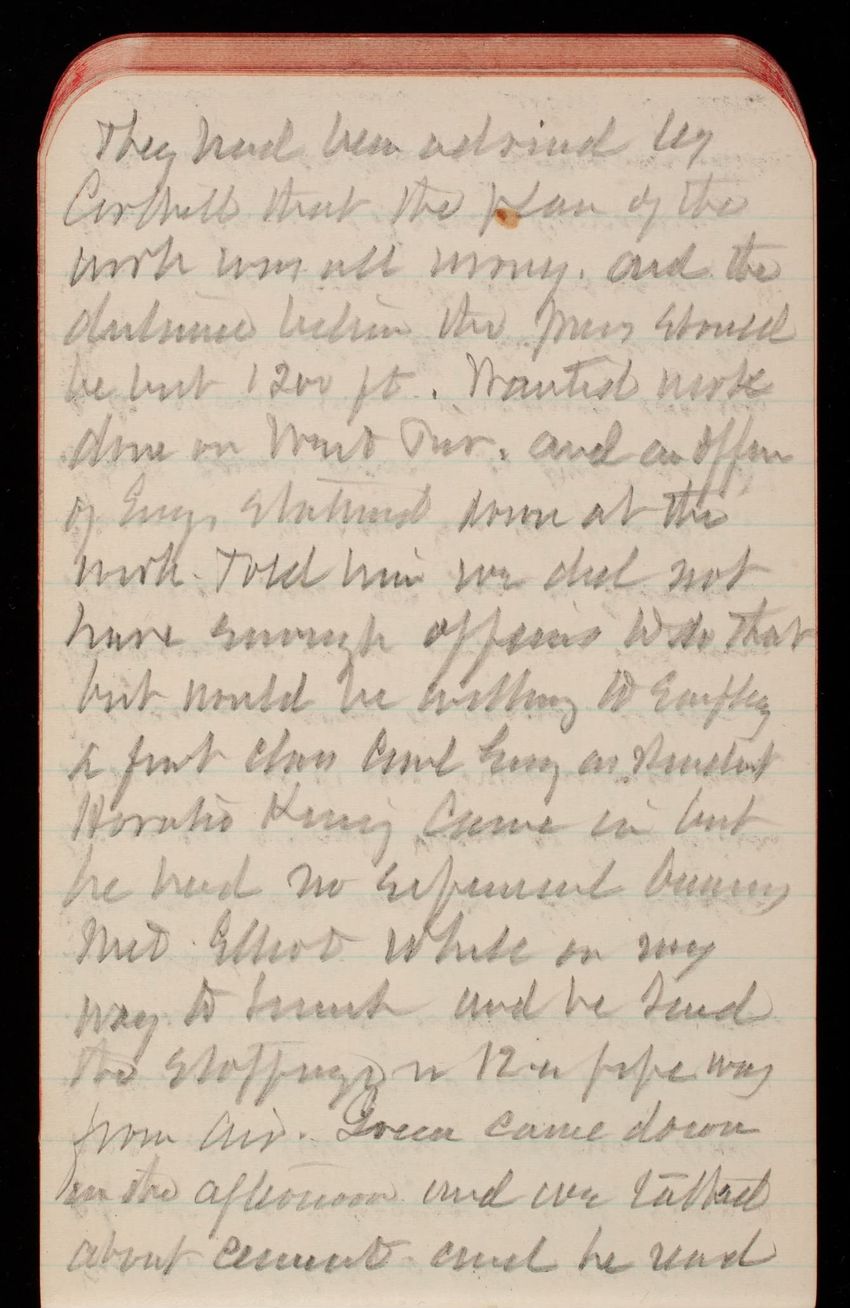 They had been advised by
Corthell that the plan of the
work was all wrong. and the
distance between the piers should
be but 1200 ft. Wanted work
done on West Pier. and an officer
of Engs stationed down at the
work. Told him we did not
have enough officers to do that
but would be willing to Employ
a first class Civil Eng as
Horatio King Came in but
he had no especial business
Met Elliot White on my
way to lunch and he said
the stoppage in 12 in pipe was
from air. Green came down
in the afternoon and we talked
about cement and he read